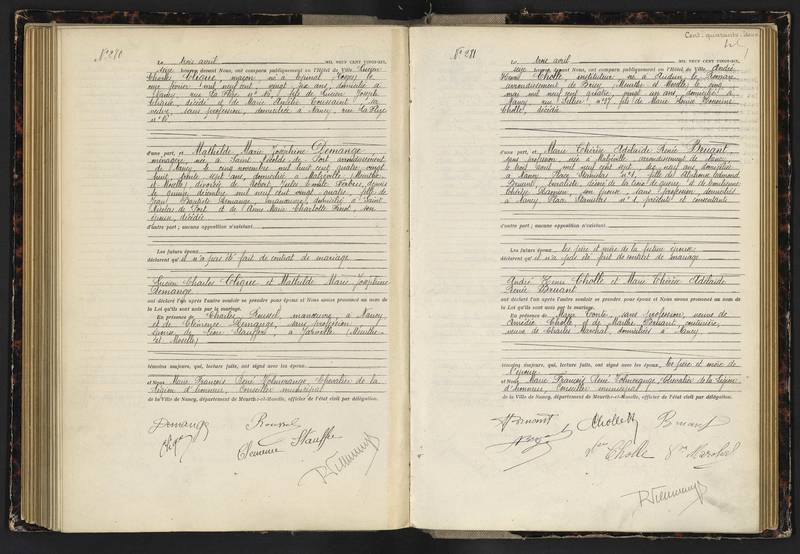 N° 280
Le trois avril MIL NEUF CENT VINGT-SIX,
onze heures devant Nous, ont comparu publiquement en l'Hôtel de Ville Lucien
Charles Cligue, maçon, né à Epinal (Vosges) le
onze février mil neuf cent, vingt six ans, domicilié à
Nancy, rue la Flize n° 15, fils de Lucien Joseph
Cligue, décédé et de Marie Amélie Toussaint sa
veuve, sans profession, domiciliée à Nancy, rue la Flize
n° 15
d'une part, et Mathilde Marie Joséphine Demange
ménagère, née à Saint Nicolas de Port arrondissement
de Nancy, le cinq novembre mil huit cent quatre vingt
huit, trente sept ans, domiciliée à Malzéville (Meurthe
et Moselle) divorcée de Robert Jules Emile depuis
le quinze décembre mil neuf cent vingt quatre, fille de
Jean Baptiste Demange, manœuvre, domicilié à Saint
Nicolas de Port et de Anne Marie Charlotte son
épouse, décédée
d'autre part ; aucune opposition n'existant
Les futurs époux
déclarent qu'il n'a pas été fait de contrat de mariage
Lucien Charles Cligue et Mathilde Marie Joséphine
Demange
ont déclaré l'un après l'autre vouloir se prendre pour époux et Nous avons prononcé au nom de
la Loi qu'ils sont unis par le mariage.
En présence de Charles Roussel, manœuvre, à Nancy
et de Clémence Demange, sans profession
épouse de Stauffer, à Jarville (Meurthe
et Moselle)
témoins majeurs, qui, lecture faite, ont signé avec les époux
et Nous Marie François René Volmerange, Chevalier de la
Légion d'honneur, Conseiller municipal
de la Ville de Nancy, département de Meurthe-et-Moselle, officier de l'état civil par délégation.
Demange Roussel
Cligue Clémence Stauffer
N° 281
Le trois avril MIL NEUF CENT VINGT-SIX,
onze heures devant Nous, ont comparu publiquement en l'Hôtel de Ville André
Henri Cholle, instituteur né à Audun le Roman
arrondissement de Briey (Meurthe et Moselle) le cinq
mai mil neuf cent quatre, vingt un ans, domicilié à
Nancy rue Sellier n° 37 fils de Marie Louise Honorine
Cholle, décédée
d'une part, et Marie Thérèse Adélaïde Renée Bruant
sans profession, née à Malzéville, arrondissement de Nancy
le trois août mil neuf cent sept, dix huit ans, domiciliée
à Nancy Place Stanislas n° 1, fille de Alphonse Edmond
Bruant, décoré de la croix de guerre, et de
Thérèse son épouse, sans profession, domiciliés
à Nancy Place Stanislas n° 1 présents et consentants
d'autre part ; aucune opposition n'existant
Les futurs époux les père et mère de la future épouse
déclarent qu'il n'a pas été fait de contrat de mariage
André Henri Cholle et Marie Thérèse Adélaïde
Renée Bruant
ont déclaré l'un après l'autre vouloir se prendre pour époux et Nous avons prononcé au nom de
la Loi qu'ils sont unis par le mariage.
En présence de Marie Conte, sans profession, veuve de
Amédée Cholle et de Marthe couturière,
veuve de Charles Maréchal, domiciliées à Nancy
témoins majeurs, qui, lecture faite, ont signé avec les époux les père et mère de
l'épouse
et Nous Marie François René Volmerange, Chevalier de la Légion
d'honneur, Conseiller municipal
de la Ville de Nancy, département de Meurthe-et-Moselle, officier de l'état civil par délégation.
ACholle Bruant
Cholle Maréchal